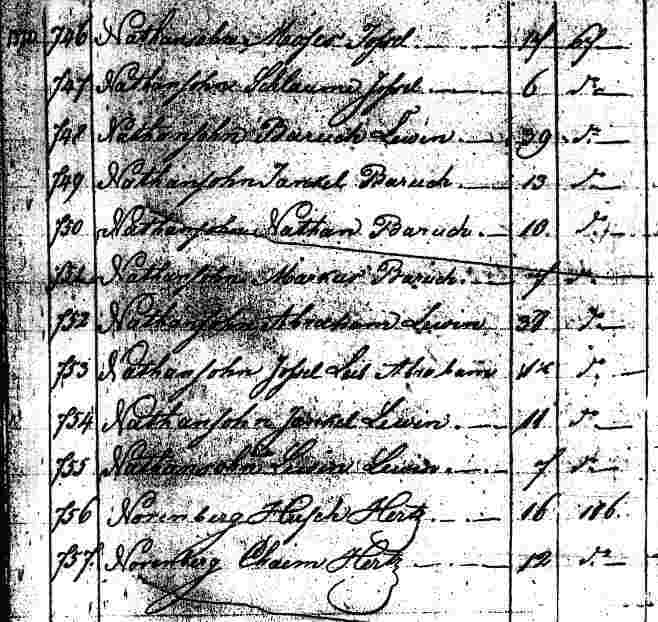 746 Nathansohn Moses Jossel 17 67
747 Nathansohn Schlaume Jossel 6 do
748 Nathansohn Baruch Lewin 39 do
749 Nathansohn Jankel Baruch 13 do
750 Nathansohn Nathan Baruch 10. do
751 Nathansohn Markus Baruch 7 do
752 Nathansohn Abraham Lewin 38 do
753 Nathansohn Jossel Leib Abraham do
754 Nathansohn Jankel Lewin 11 do
755 Nathansohn Lewin Lewin 7 do
756 Norenberg Hirsch Hertz 16 106.
757. Norenberg Chaim Hertz 12 do